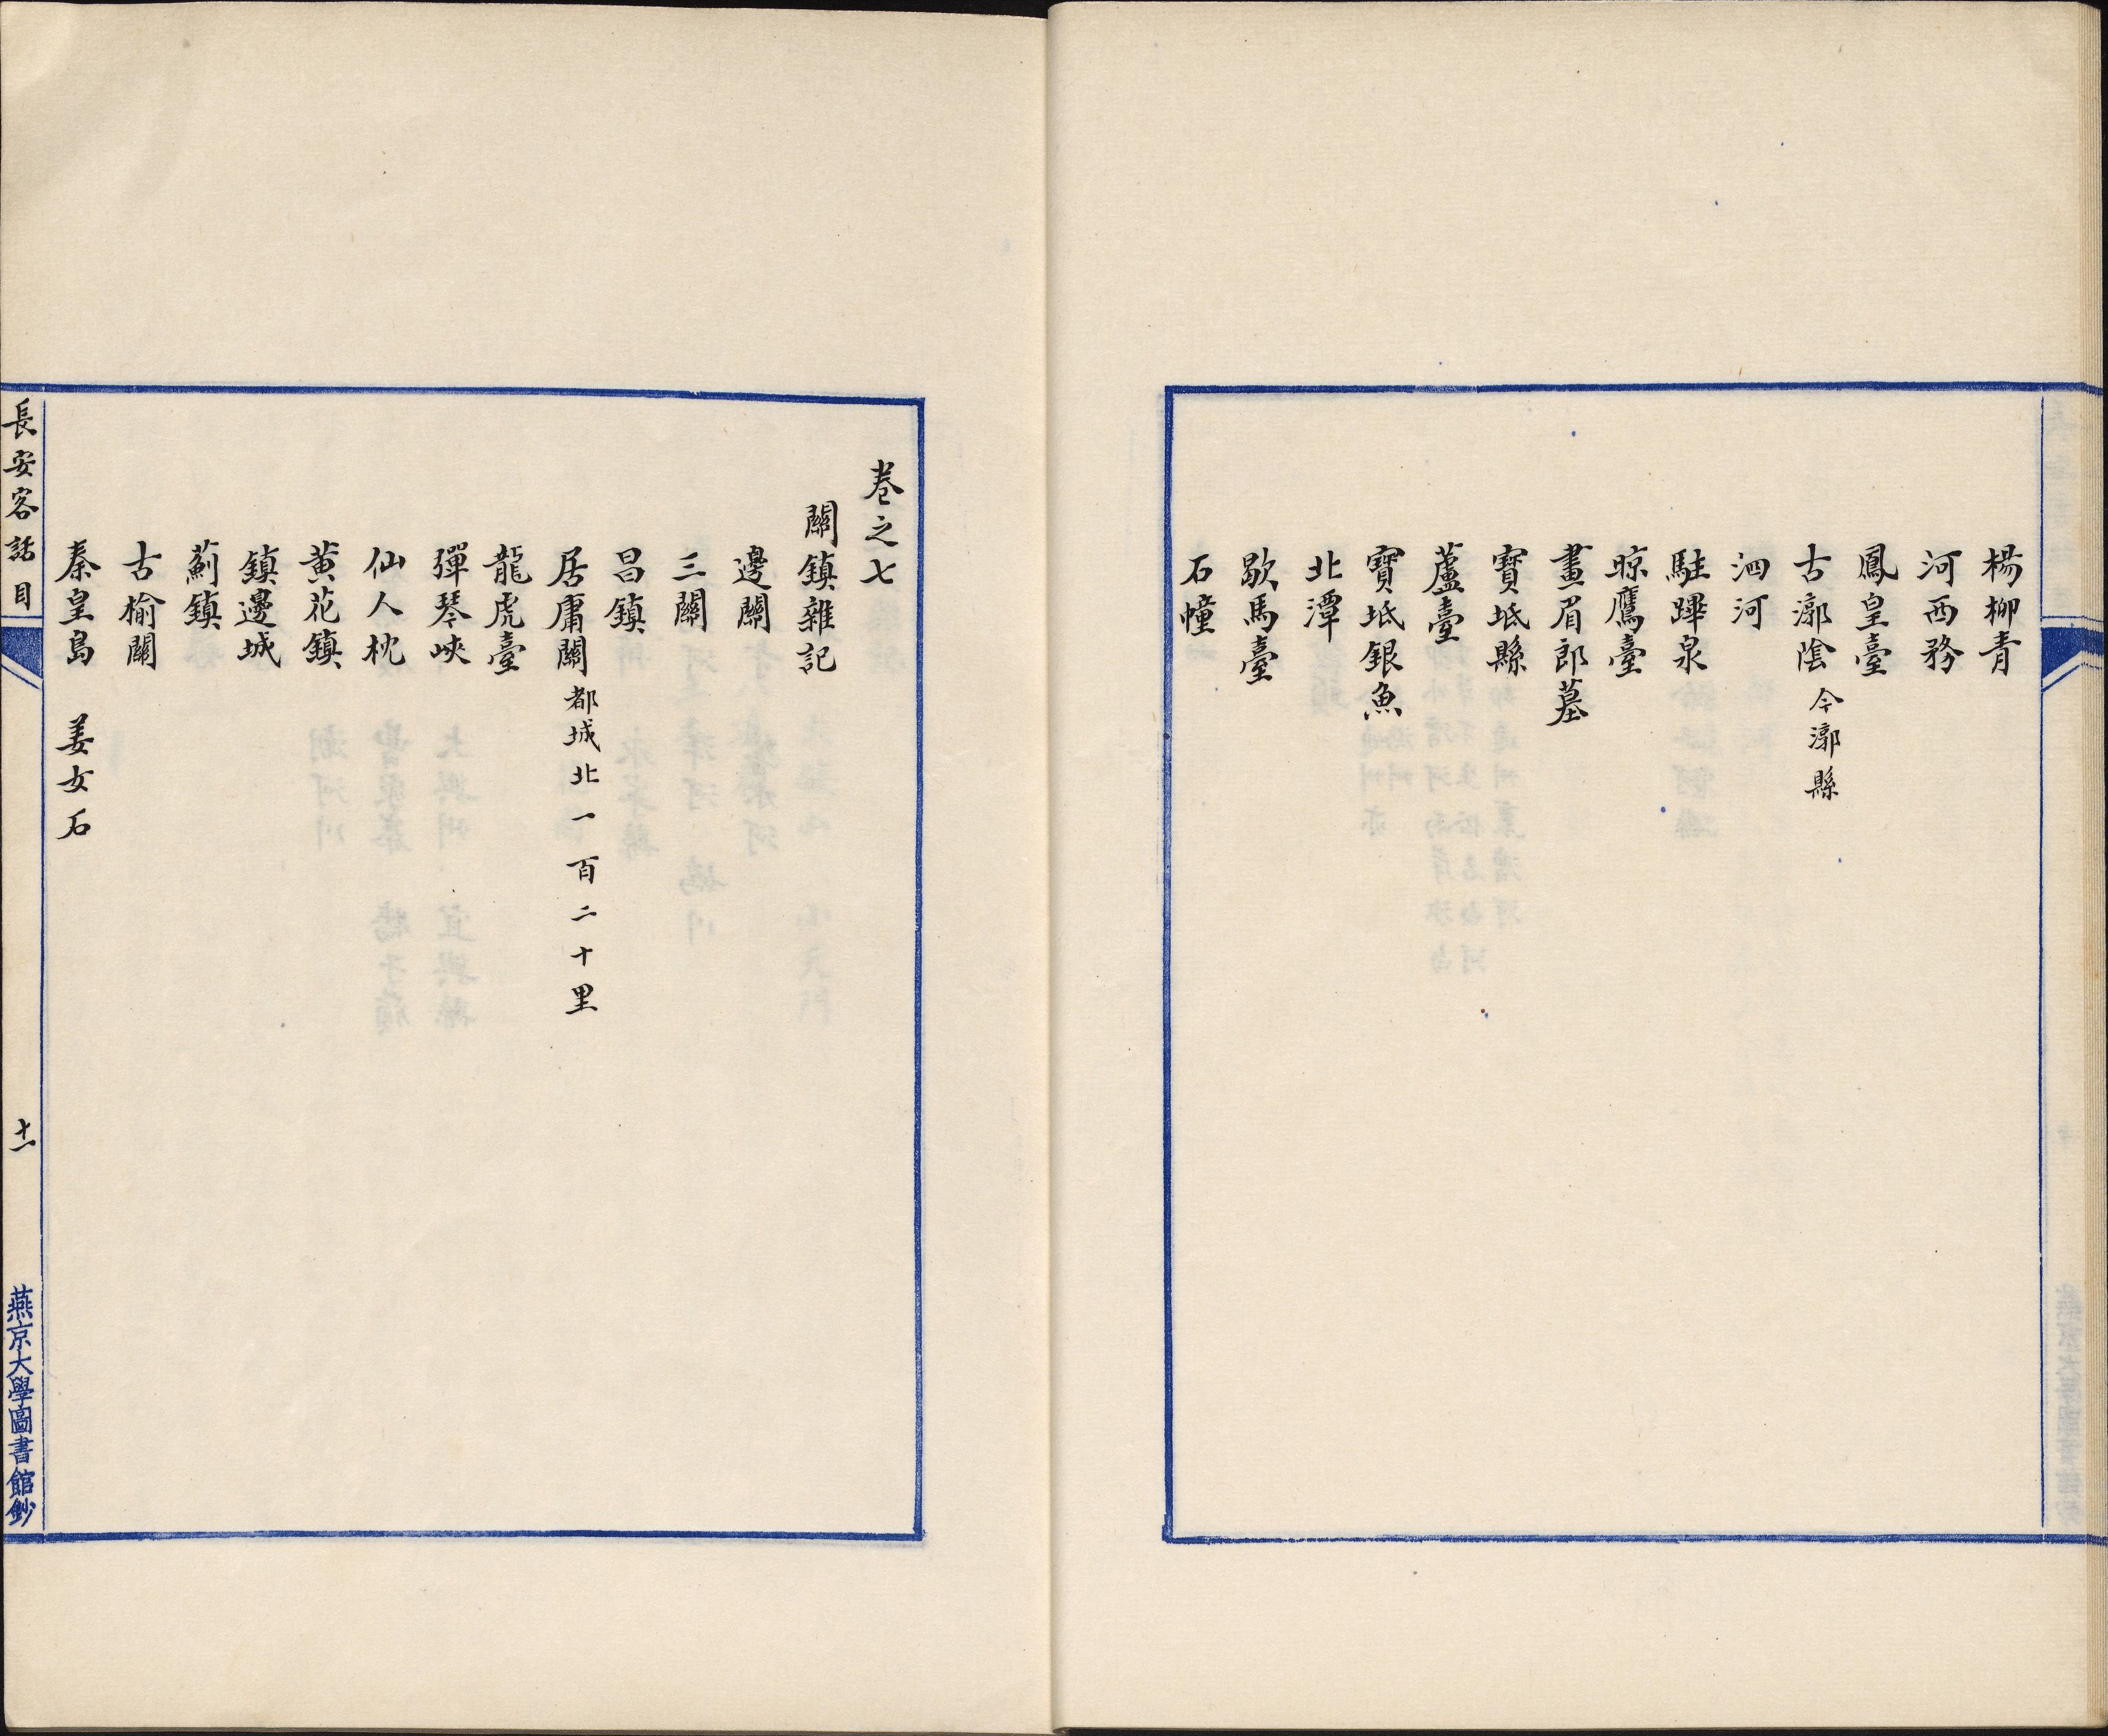 楊柳青
河西務
鳳皇臺
古漷陰今漷縣
泗河
駐蹕泉
晾鷹臺
畫眉郎墓
寳坻縣
蘆臺
寳坻銀魚
北潭
歇馬臺
石幢
卷之七
關鎮雜記
邊關
三關
昌鎮
居庸關都城北一百二十里
龍虎臺
彈琴峽
仙人枕
黄花鎮
鎮邊城
薊鎮
古榆關
秦皇島 姜女石
長安客話 目 十一 燕京大學圖書館鈔